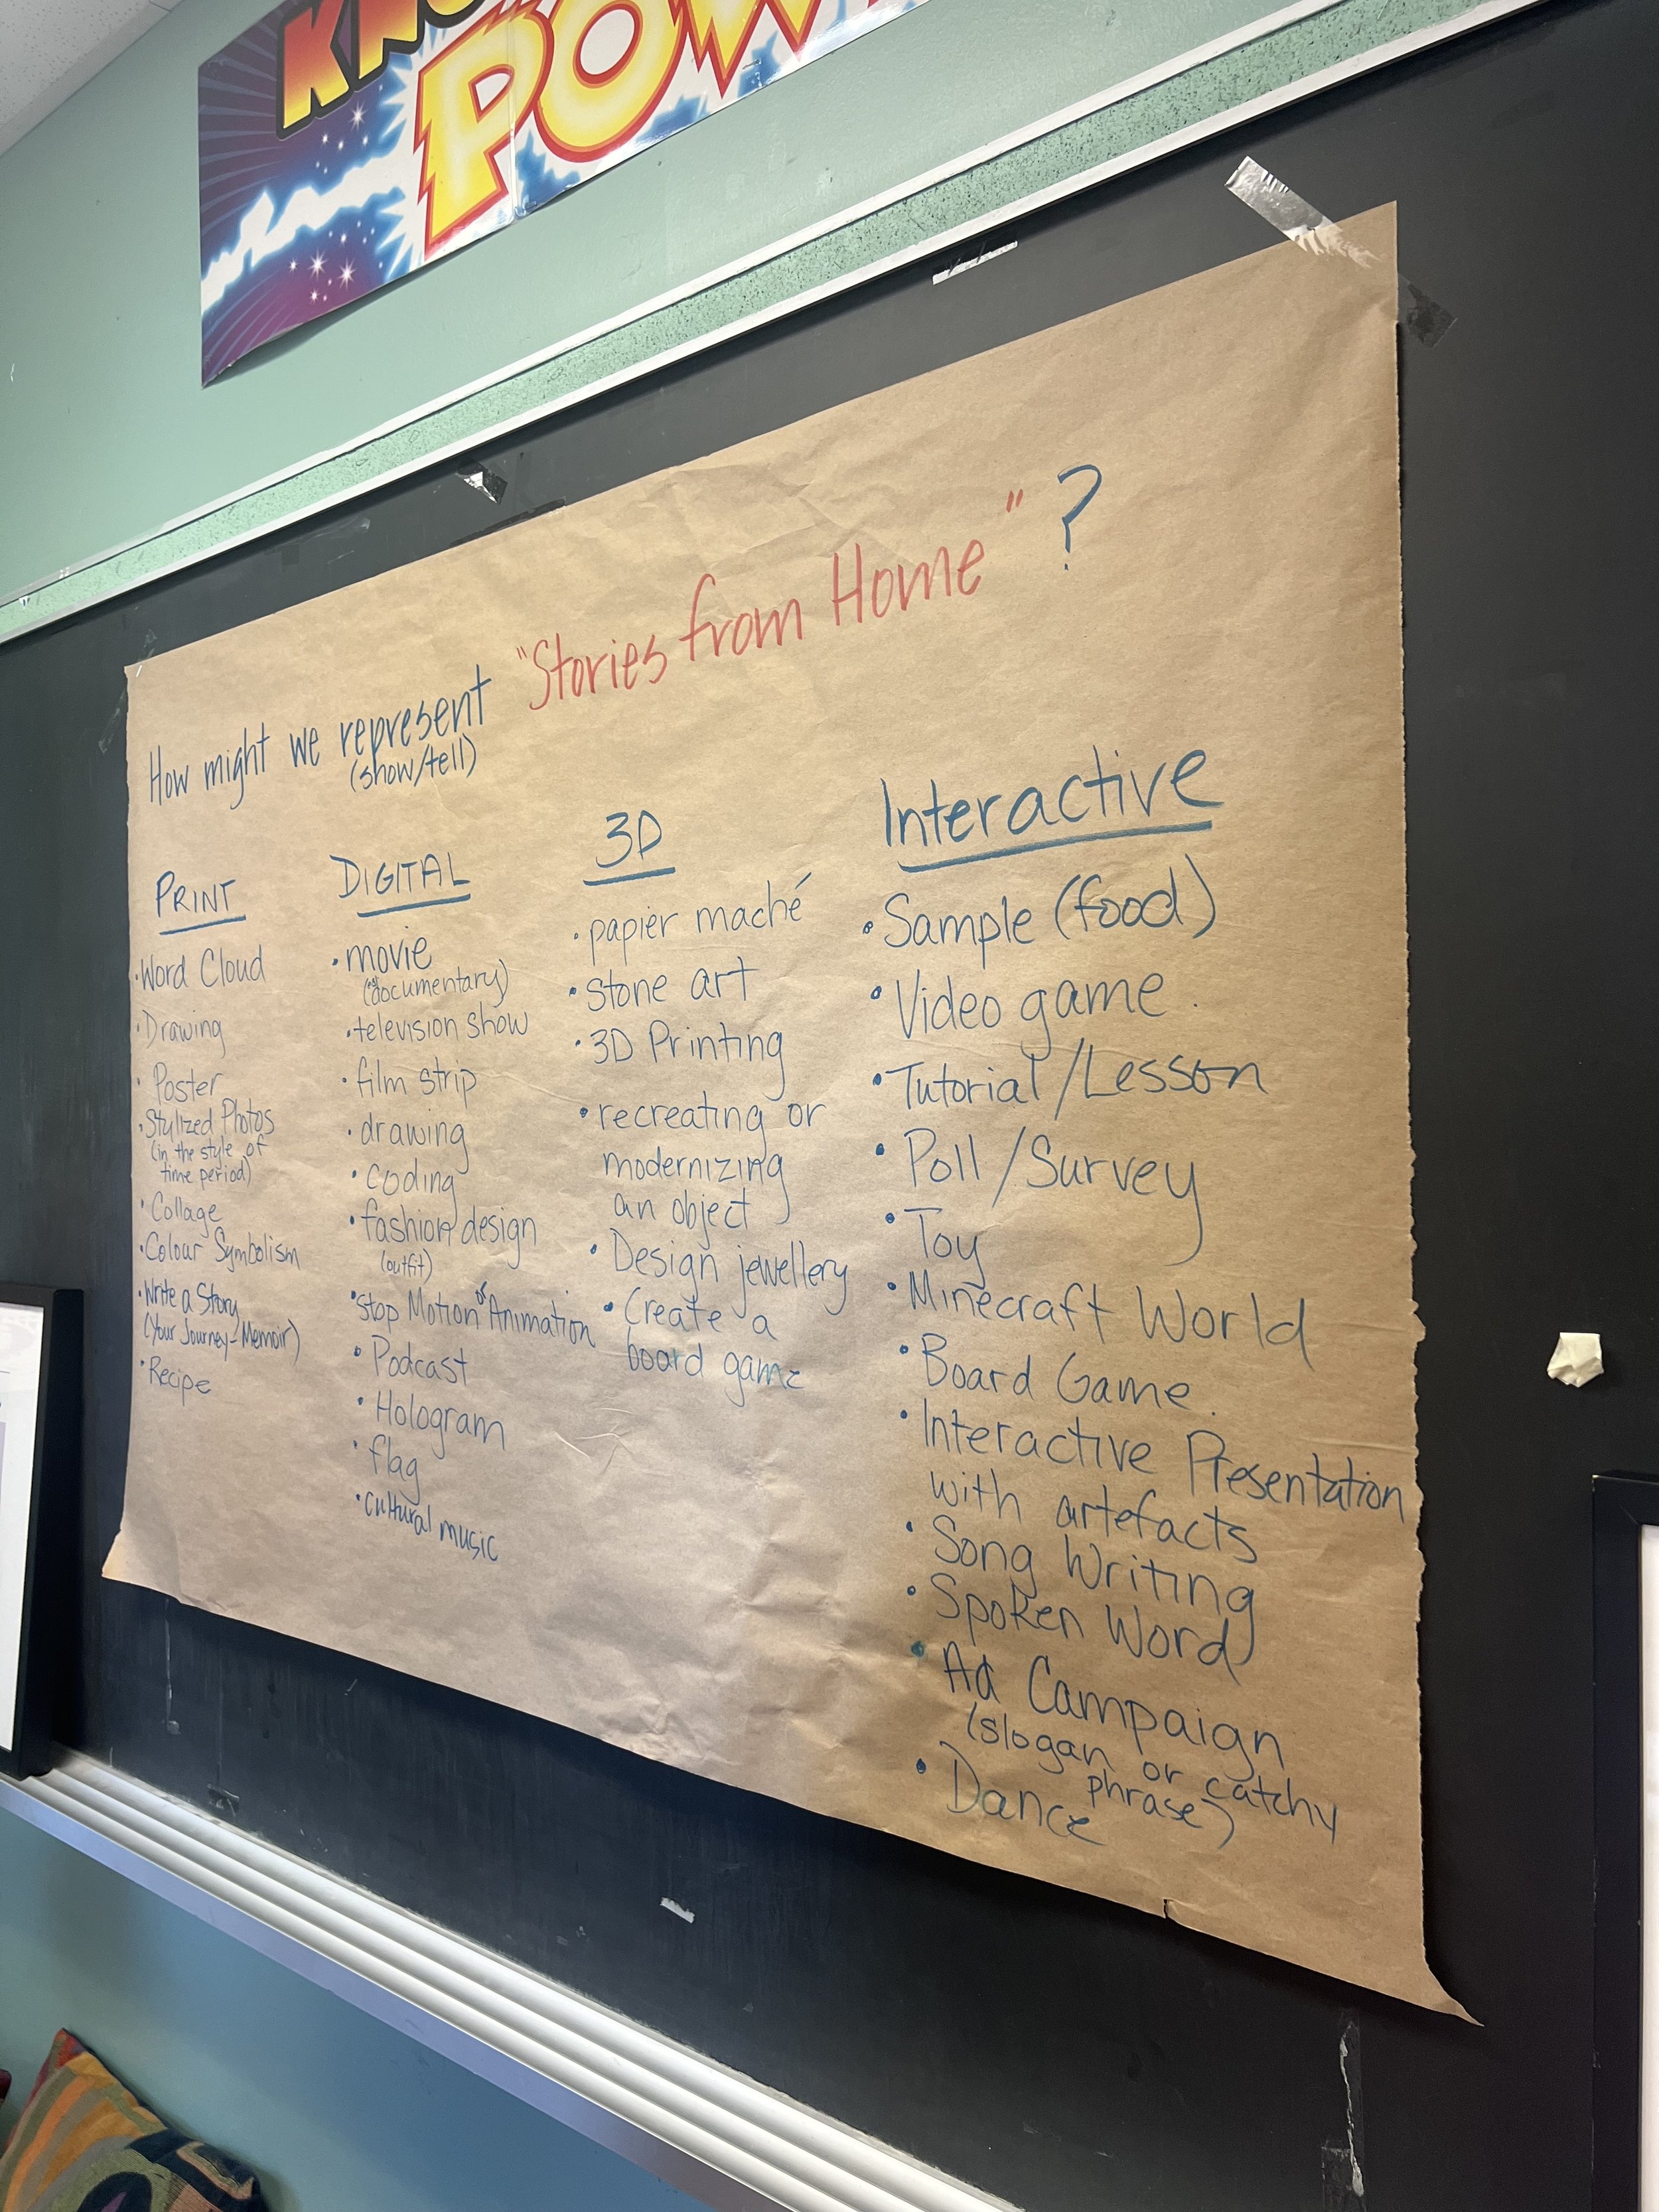 POW
How might we represent "Stories from Home" ?
(show/tell)
PRINT
• Word Cloud
• Drawing
• Poster
• Stylized Photos
(in the style of
time period)
• Collage
• Colour Symbolism
• Write a Story
(Your Journey - Memoir)
• Recipe
DIGITAL
• movie
(documentary)
• television show
• film strip
• drawing
• coding
• fashion design
(outfit)
• Stop Motion or Animation
• Podcast
• Hologram
• flag
• cultural music
3D
• papier maché
• stone art
• 3D Printing
• recreating or
modernizing
an object
• Design jewellery
• Create a
board game
Interactive
• Sample (food)
• Video game
• Tutorial/Lesson
• Poll/Survey
• Toy
• Minecraft World
• Board Game
• Interactive Presentation
with artefacts
• Song Writing
• Spoken Word
• Ad Campaign
(slogan or catchy
phrase)
• Dance